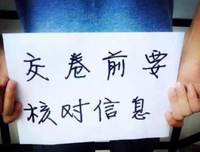 交卷前要
核对信息